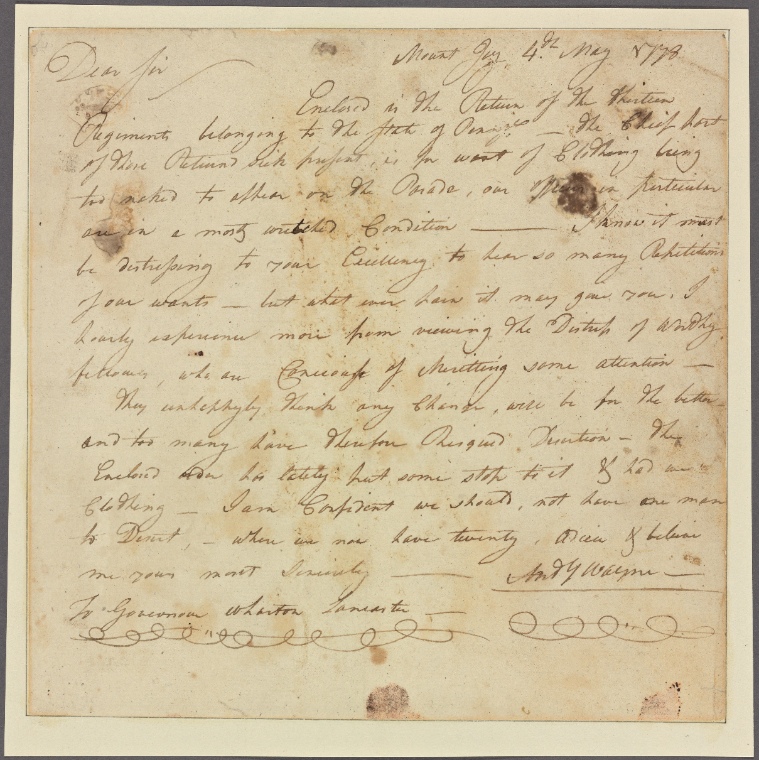 Mount Joy 4th May 1778
Dear Sir
Enclosed is the Return of the thirteen
Regiments belonging to the State of Penna — the Chief part
of those Returned sick present, is for want of Clothing being
too naked to appear on the Parade, our officers in particular
are in a most wretched Condition — I know it must
be distressing to your Excellency to hear so many Repetitions
of our wants — but what ever pain it may give you, I
hourly experience more from viewing the Distress of worthy
fellows, who are Conscious of Meriting some attention —
They unhappyly think any Change, will be for the better
and too many have therefore Risqued Desertion — the
Enclosed order has lately put some stop to it & had we
Clothing — I am Confident we should, not have one man
to Desert, — where we now have twenty, adieu & believe
me yours most Sincerely — Anty Wayne —
To Governour Wharton Lancaster —